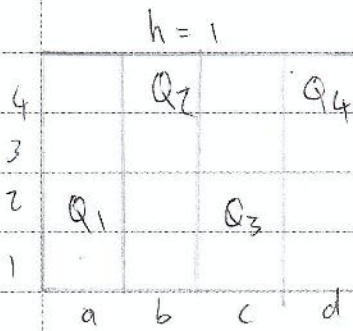 h = 1
4 Q2 Q4
3
2 Q1 Q3
1
a b c d